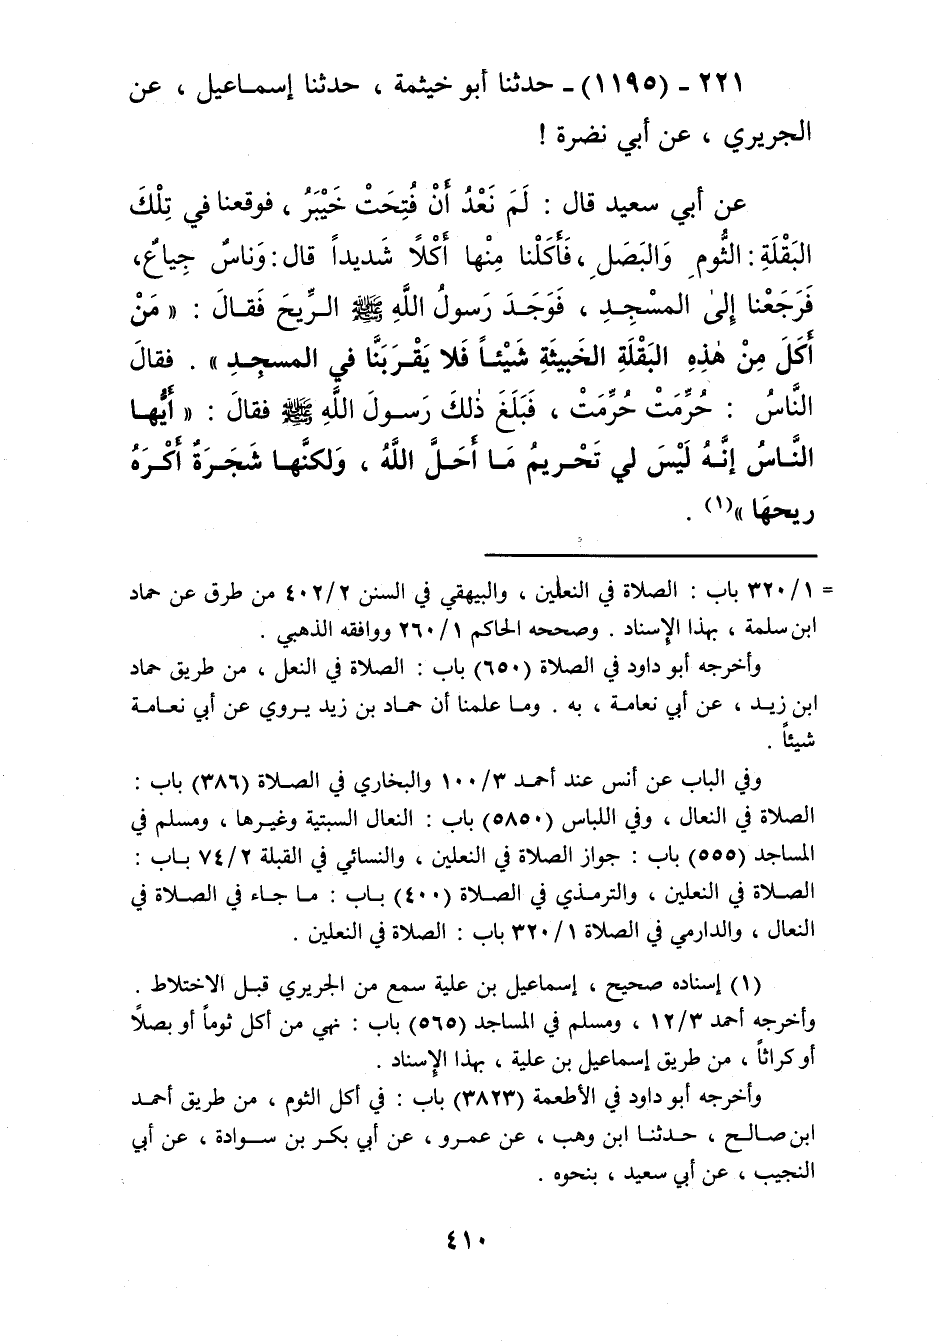 ٢٢١ - (١١٩٥) - حدثنا أبو خيثمة ، حدثنا إسماعيل ، عن
الجريري ، عن أبي نضرة !
عن أبي سعيد قال : لَمَ نَعْدُ أَنْ فُتِحَتْ خَيْبَرُ ، فوقعنا في تِلْكَ
البَقْلَةِ : الثُّومِ وَالبَصَلِ ، فَأَكَلْنا مِنْها أَكْلاً شَديداً قال : وَناسٌ جِياعٌ ،
فَرَجَعْنا إِلىٰ المسْجِدِ ، فَوَجَدَ رَسولُ اللَّهِ ﷺ الرِّيحَ فَقالَ : « مَنْ
أَكَلَ مِنْ هٰذِهِ البَقْلَةِ الخَبيثَةِ شَيْئاً فَلا يَقْرَبَنَّا في المسجِدِ » . فقالَ
النَّاسُ : حُرِّمَتْ حُرِّمَتْ ، فَبَلَغَ ذٰلكَ رَسولَ اللَّهِ ﷺ فقالَ : « أَيُّها
النَّاسُ إِنَّهُ لَيْسَ لي تَحْريمُ مَا أَحَلَّ اللَّهُ ، وَلكنَّها شَجَرَةٌ أَكْرَهُ
ريحهَا »(١) .
= ٣٢٠/١ باب : الصلاة في النعلين ، والبيهقي في السنن ٤٠٢/٢ من طرق عن حماد
ابن سلمة ، بهذا الإسناد . وصححه الحاكم ٢٦٠/١ ووافقه الذهبي .
وأخرجه أبو داود في الصلاة (٦٥٠) باب : الصلاة في النعل ، من طريق حماد
ابن زيد ، عن أبي نعامة ، به . وما علمنا أن حماد بن زيد يروي عن أبي نعامة
شيئاً .
وفي الباب عن أنس عند أحمد ١٠٠/٣ والبخاري في الصلاة (٣٨٦) باب :
الصلاة في النعال ، وفي اللباس (٥٨٥٠) باب : النعال السبتية وغيرها ، ومسلم في
المساجد (٥٥٥) باب : جواز الصلاة في النعلين ، والنسائي في القبلة ٧٤/٢ باب :
الصلاة في النعلين ، والترمذي في الصلاة (٤٠٠) باب : ما جاء في الصلاة في
النعال ، والدارمي في الصلاة ٣٢٠/١ باب : الصلاة في النعلين .
(١) إسناده صحيح ، إسماعيل بن علية سمع من الجريري قبل الاختلاط .
وأخرجه أحمد ١٢/٣ ، ومسلم في المساجد (٥٦٥) باب : نهي من أكل ثوماً أو بصلاً
أو كراثاً ، من طريق إسماعيل بن علية ، بهذا الإسناد .
وأخرجه أبو داود في الأطعمة (٣٨٢٣) باب : في أكل الثوم ، من طريق أحمد
ابن صالح ، حدثنا ابن وهب ، عن عمرو ، عن أبي بكر بن سوادة ، عن أبي
النجيب ، عن أبي سعيد ، بنحوه .
٤١٠